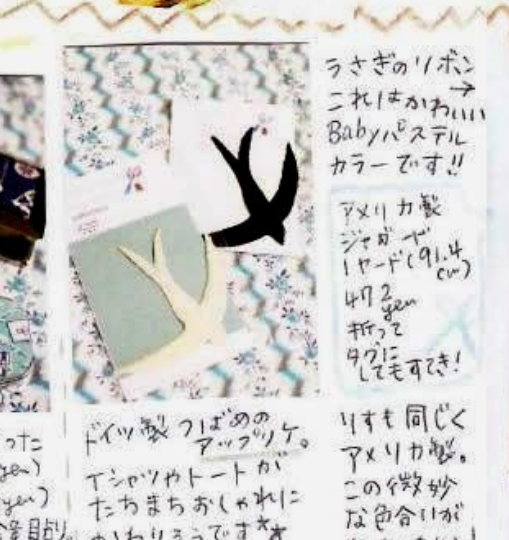 うさぎのリボン
→
これはかわいい
Babyパステル
カラーです!!
アメリカ製
ジャガード
1ヤード(91.4
cm)
472
yen
折って
タグに
してもすてき!
ドイツ製 つばめの
アップリケ。
Tシャツやトートが
たちまちおしゃれに
かわりそうです**
りすも同じく
アメリカ製。
この微妙
な色合いが
った
yen)
yen)